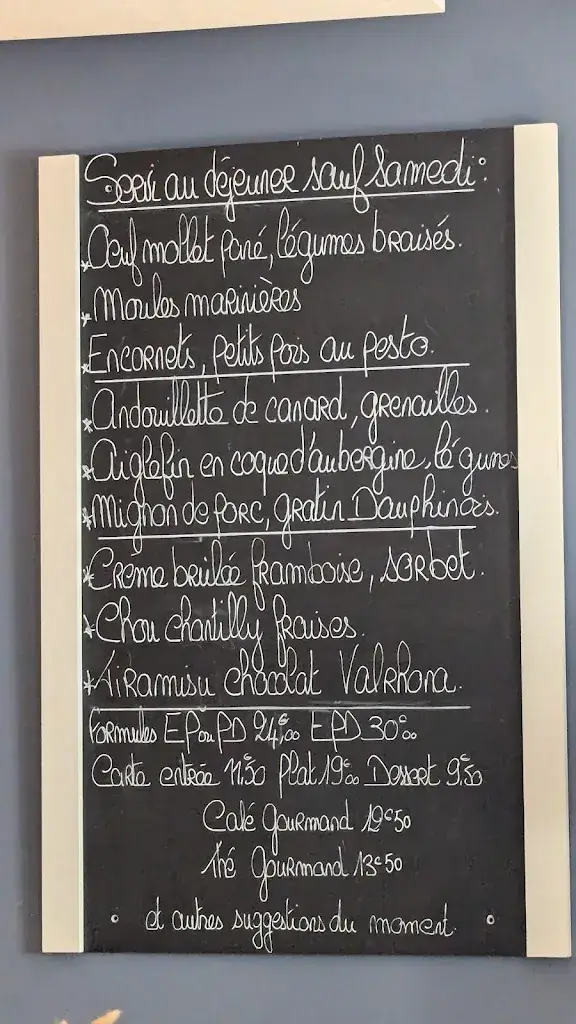 Servi au déjeuner sauf Samedi :
* Oeuf mollet pané, légumes braisés.
* Moules marinières
* Encornets, petits pois au pesto.
* Andouillette de canard, grenailles.
* Aiglefin en coque d'aubergine, légumes
* Mignon de porc, gratin Dauphinois.
* Crème brûlée framboise, sorbet.
* Chou chantilly fraises.
* Tiramisu chocolat Valrhona.
Formules EP ou PD 24€00 EPD 30€00
Carte entrée 11.50 plat 19€00 Dessert 9.50
Café Gourmand 12€50
Thé Gourmand 13€50
et autres suggestions du moment.